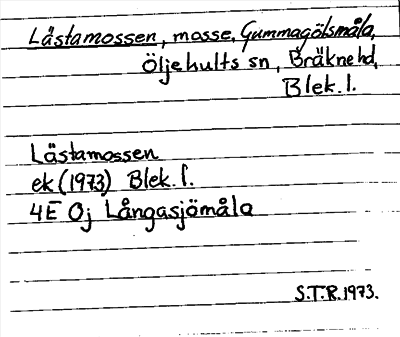 Låstamossen, mosse, Gummagölsmåla,
Öljehults sn, Bräkne hd,
Blek. l.
Lästamossen
ek (1973) Blek. l.
4E 0j Långasjömåla
S.T.R. 1973.